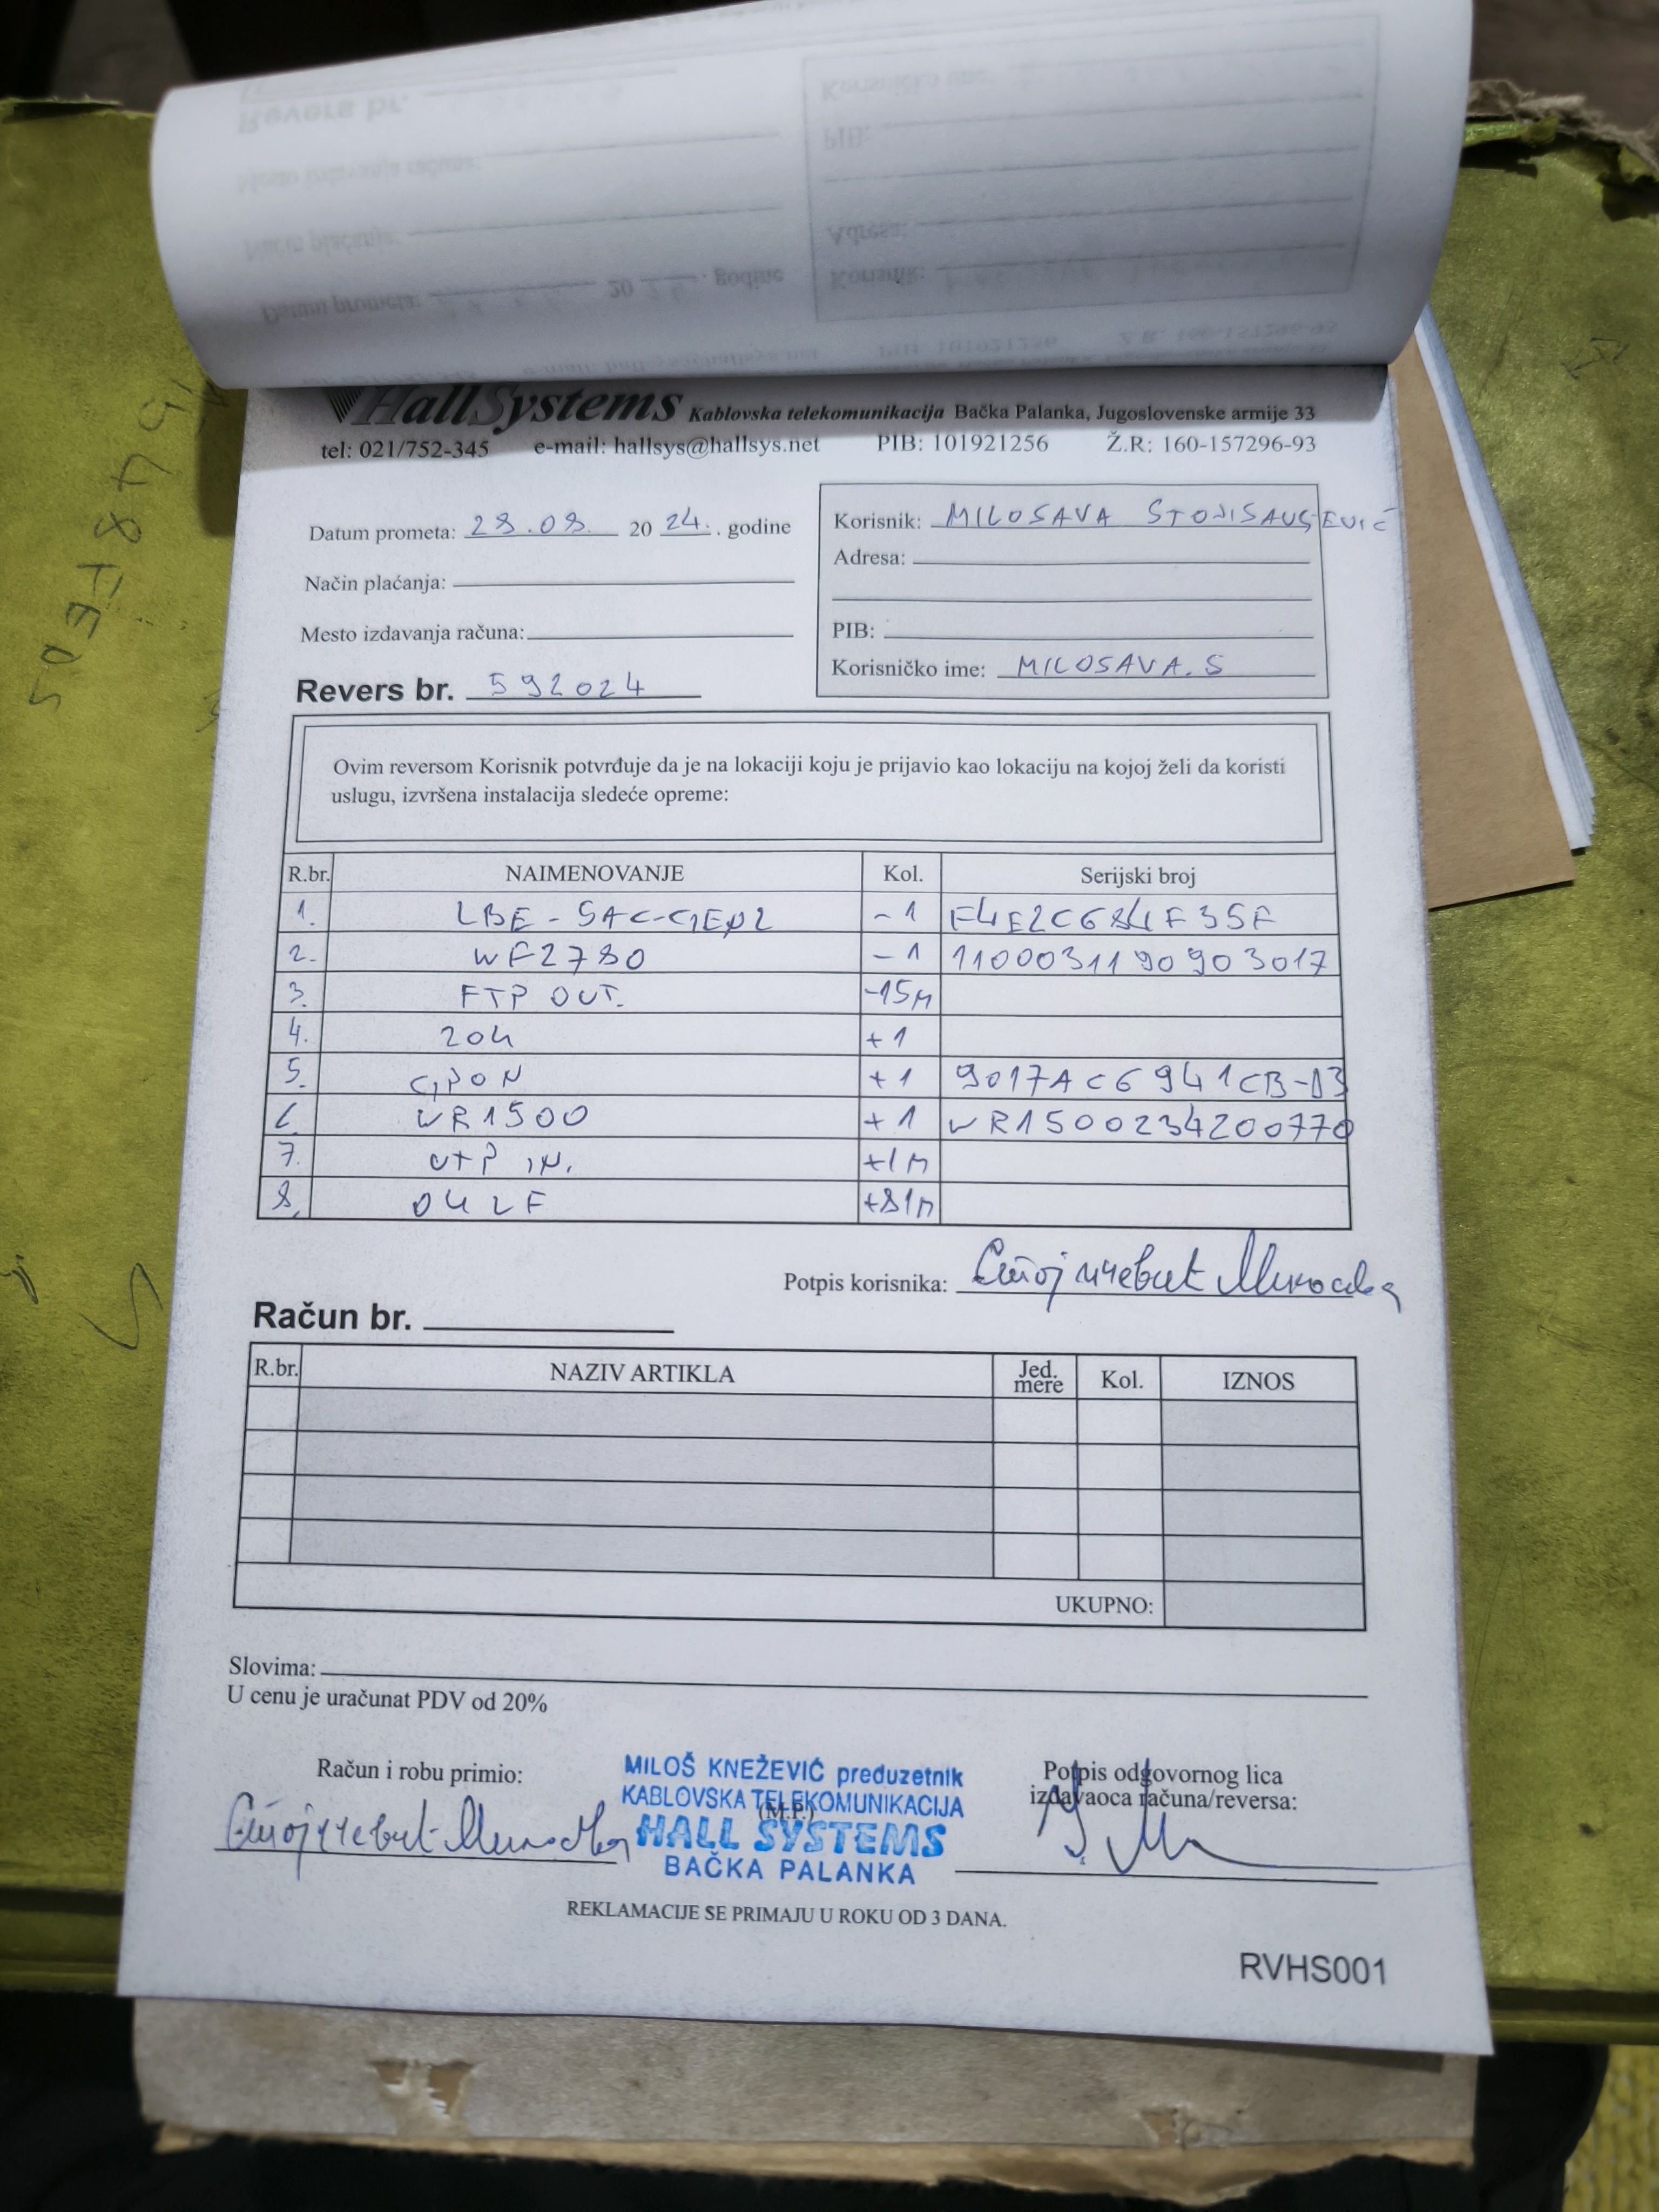 HallSystems Kablovska telekomunikacija Bačka Palanka, Jugoslovenske armije 33
tel: 021/752-345 e-mail: hallsys@hallsys.net PIB: 101921256 Ž.R: 160-157296-93
Datum prometa: 28.08. 20 24. . godine
Način plaćanja:
Mesto izdavanja računa:
Revers br. 592024
Korisnik: MILOSAVA STOJISAVLJEVIĆ
Adresa:
PIB:
Korisničko ime: MILOSAVA.S
Ovim reversom Korisnik potvrđuje da je na lokaciji koju je prijavio kao lokaciju na kojoj želi da koristi
uslugu, izvršena instalacija sledeće opreme:
R.br. NAIMENOVANJE Kol. Serijski broj
1. LBE-5AC-GEN2 -1
2. WF2780 -1 1100031190903017
3. FTP OUT. -15M
4. ZOK +1
5. GPON +1 9017AC6941CB-D3
6. WR1500 +1 WR1500234200770
7. UTP IN. +1M
8. +81M
Potpis korisnika:
Račun br.
R.br. NAZIV ARTIKLA Jed. mere Kol. IZNOS
UKUPNO:
Slovima:
U cenu je uračunat PDV od 20%
Račun i robu primio:
MILOŠ KNEŽEVIĆ preduzetnik
KABLOVSKA TELEKOMUNIKACIJA
(M.P.)
HALL SYSTEMS
BAČKA PALANKA
Potpis odgovornog lica
izdavaoca računa/reversa:
REKLAMACIJE SE PRIMAJU U ROKU OD 3 DANA.
RVHS001